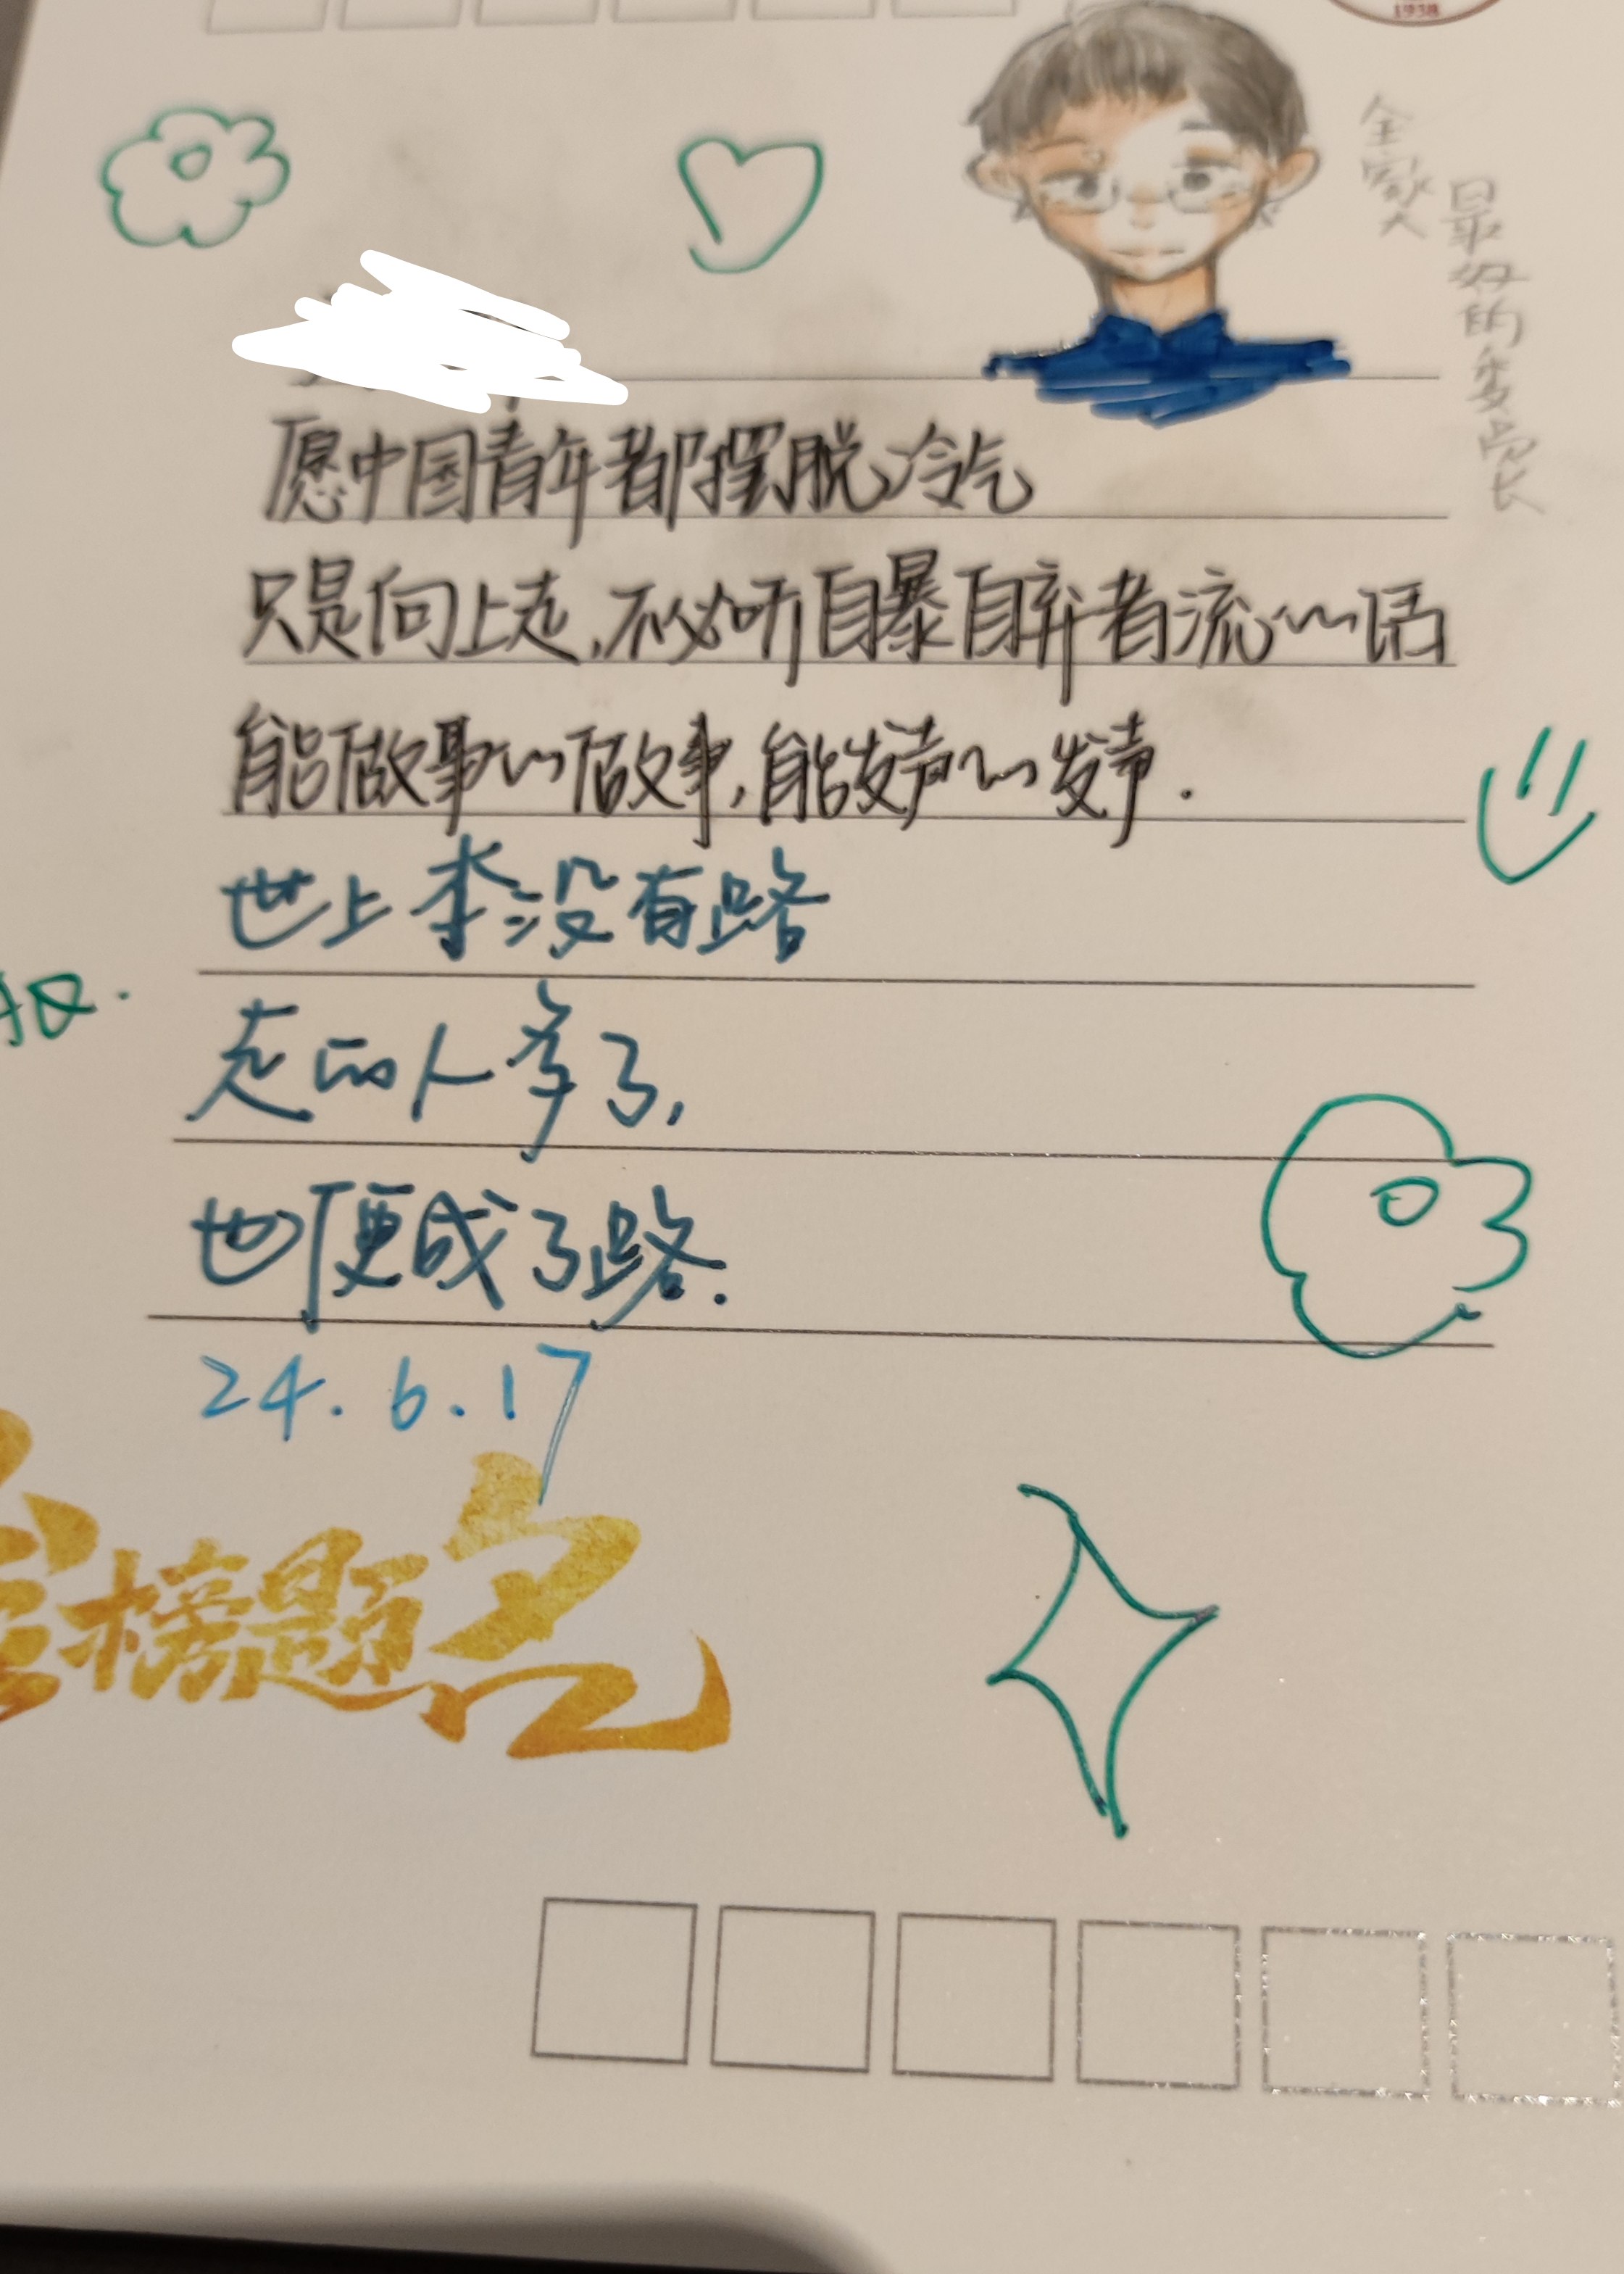 1938
全家
最好的委员长
愿中国青年都摆脱冷气
只是向上走,不必听自暴自弃者流的话
能做事的做事,能发声的发声.
世上本没有路
走的人多了,
也便成了路.
24.6.17
金榜题名